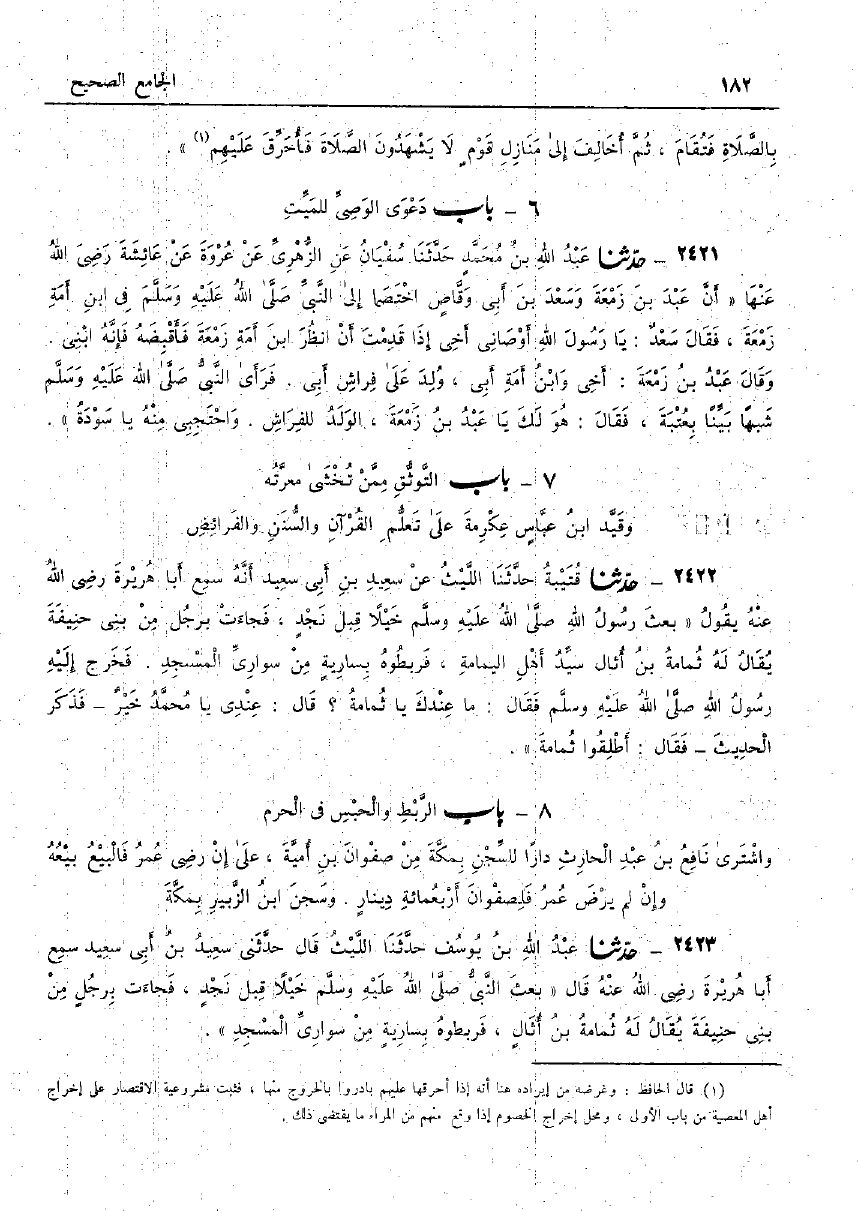 ١٨٢ الجامع الصحيح
بِالصَّلَاةِ فَتُقَامَ ، ثُمَّ أُخَالِفَ إلىٰ مَنَازِلِ قَوْمٍ لَا يَشْهَدُونَ الصَّلَاةَ فَأُحَرِّقَ عَلَيْهِم(١) » .
٦ – باب دَعْوَى الوَصِىِّ للمَيِّتِ
٢٤٢١ – حدّثنا عَبْدُ اللهِ بنُ مُحَمَّدٍ حَدَّثَنَا سُفْيَانُ عَنِ الزُّهْرِىِّ عَنْ عُرْوَةَ عَنْ عَائِشَةَ رَضِىَ اللهُ
عَنْهَا « أَنَّ عَبْدَ بنَ زَمْعَةَ وَسَعْدَ بنَ أَبِى وَقَّاصٍ اخْتَصَمَا إلىٰ النَّبِىِّ صَلَّىٰ اللهُ عَلَيْهِ وَسَلَّمَ فِى ابنِ أَمَةِ
زَمْعَةَ ، فَقَالَ سَعْدٌ : يَا رَسُولَ اللهِ أَوْصَانِى أَخِى إذَا قَدِمْتَ أَنْ انظُرَ ابنَ أَمَةِ زَمْعَةَ فَأَقْبِضَهُ فَإِنَّهُ ابْنِى .
وَقَالَ عَبْدُ بنُ زَمْعَةَ : أَخِى وَابْنُ أَمَةِ أَبِى ، وُلِدَ عَلىٰ فِرَاشِ أَبِى . فَرَأَى النَّبِىُّ صَلَّىٰ الله عَلَيْهِ وَسَلَّم
شَبَهًا بَيِّنًا بِعُتْبَةَ ، فَقَالَ : هُوَ لَكَ يَا عَبْدُ بنُ زَمْعَةَ ، الوَلَدُ للفِرَاشِ . وَاحْتَجِبِى مِنْهُ يا سَوْدَةُ » .
٧ – باب التَّوثُّقِ مِمَّنْ تُخْشَىٰ معرَّتُه
وَقَيَّد ابنُ عبَّاسٍ عِكْرِمةَ علىٰ تَعلُّمِ القُرْآنِ والسُّنَنِ والفَرائِضِ
٢٤٢٢ – حدّثنا قُتَيْبةُ حدَّثَنَا اللَّيْثُ عنْ سعِيدِ بنِ أَبِى سعِيد أَنَّهُ سمِع أَبا هُريْرةَ رضِى اللهُ
عنْهُ يقُولُ « بعثَ رسُولُ اللهِ صلَّىٰ اللهُ علَيْهِ وسلَّم خَيْلًا قِبلَ نَجْدٍ ، فَجاءَتْ بِرجُلٍ مِنْ بنِى حنِيفَةَ
يُقَالُ لَهُ ثُمامةُ بنُ أُثَال سيِّدُ أَهْلِ اليمامةِ ، فَربطُوهُ بِسارِيةٍ مِنْ سوارِىِّ الْمسْجِدِ . فَخَرج إلَيْهِ
رسُولُ اللهِ صلَّىٰ اللهُ علَيْهِ وسلَّم فَقَال : ما عِنْدكَ يا ثُمامةُ ؟ قَال : عِنْدِى يا مُحمَّدُ خَيْرٌ – فَذَكَر
الْحدِيثَ – فَقَال : أَطْلِقُوا ثُمامةَ » .
٨ – باب الرَّبْطِ والْحبْسِ فى الْحرمِ
واشْتَرىٰ نَافِعُ بنُ عبْدِ الْحارِثِ دارًا للسِّجْنِ بِمكَّةَ مِنْ صفْوانَ بنِ أُميَّةَ ، علىٰ إنْ رضِى عُمرُ فَالْبيْعُ بيْعُهُ
وإنْ لم يرْضَ عُمرُ فَلِصفْوانَ أَرْبعُمائةِ دِينارٍ . وسَجنَ ابنُ الزُّبيْرِ بِمكَّةَ
٢٤٢٣ – حدّثنا عبْدُ اللهِ بنُ يُوسُف حدَّثَنَا اللَّيْثُ قَال حدَّثَنى سعِيدُ بنُ أَبِى سعِيد سمِع
أَبا هُريْرةَ رضِى اللهُ عنْهُ قَال « بعثَ النَّبِىُّ صلَّىٰ اللهُ علَيْهِ وسلَّم خَيْلًا قِبلَ نَجْدٍ ، فَجاءَت بِرجُلٍ مِنْ
بنِى حنِيفَةَ يُقَالُ لَهُ ثُمامةُ بنُ أُثَالٍ ، فَربطوهُ بِسارِيةٍ مِنْ سوارِىِّ الْمسْجدِ » .
(١) قال الحافظ : وغرضه من إيراده هنا أنه إذا أحرقها عليهم بادروا بالخروج منها ، فثبت مشروعية الاقتصار على إخراج
أهل المعصية من باب الأولى ، ومحل إخراج الخصوم إذا وقع منهم من المراء ما يقتضى ذلك .